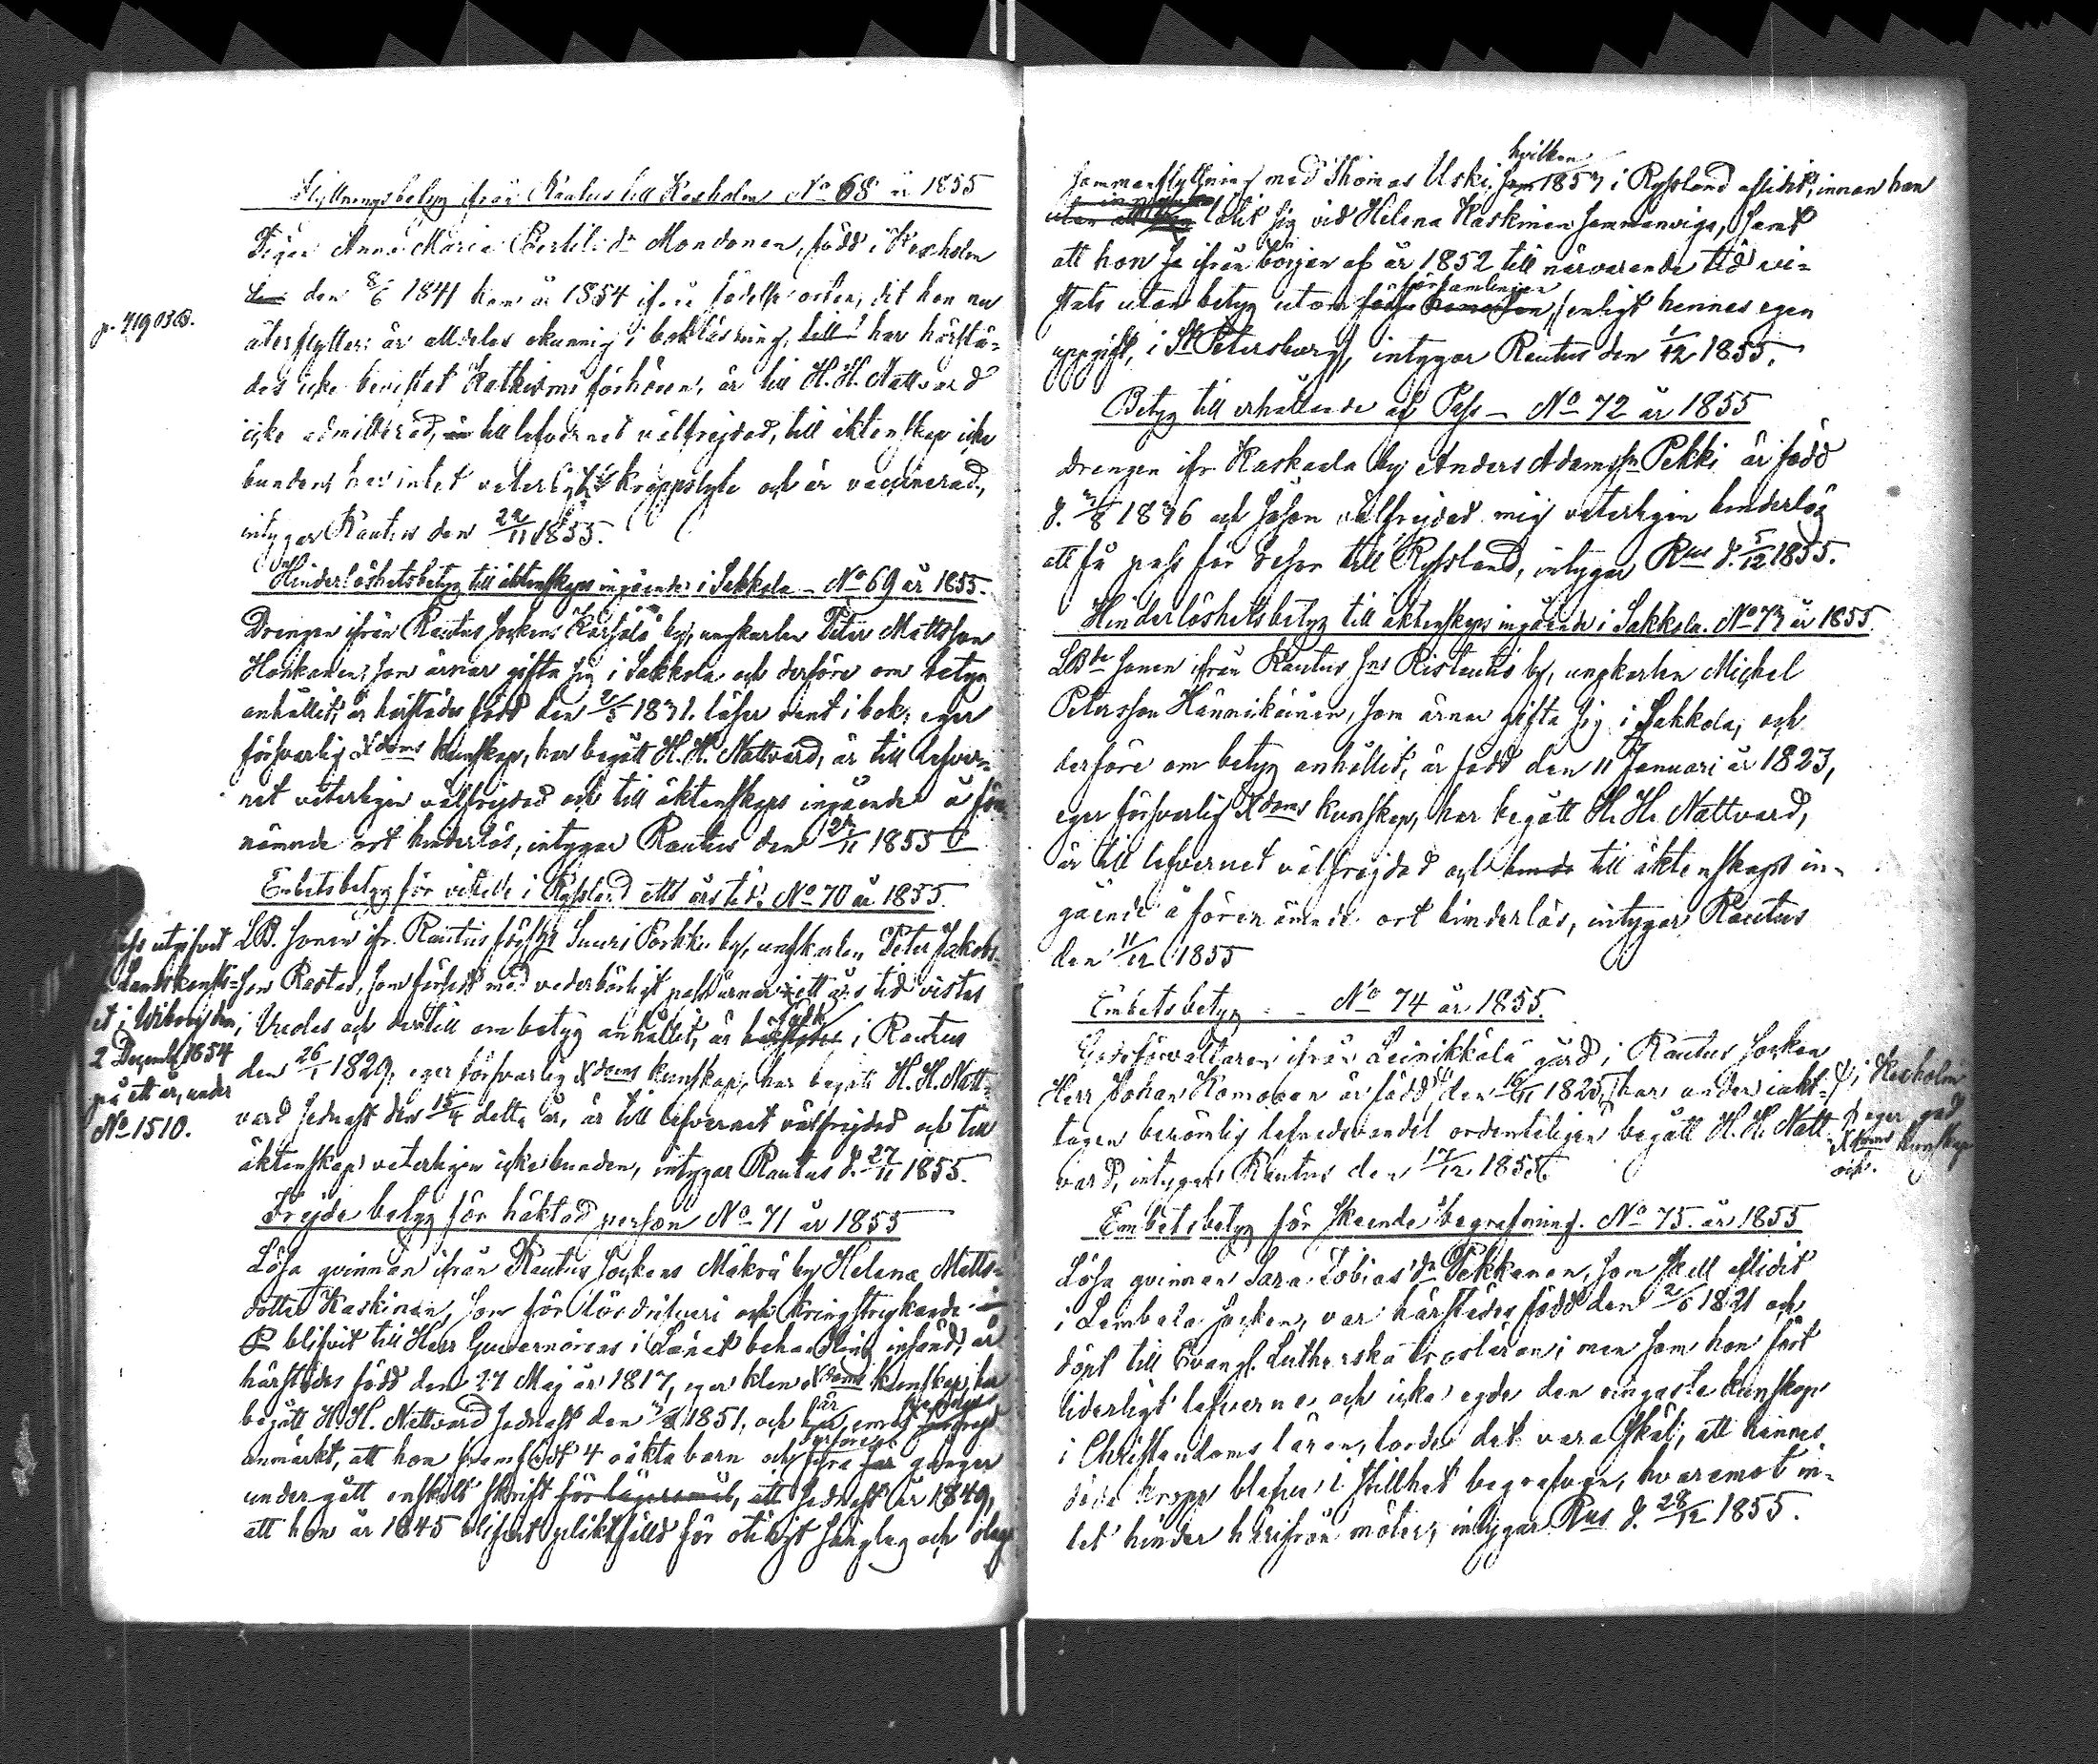 Flyttningsbetyg ifrån Rautus till Kexholm No 68 år 1855
Pigan Anna Maria Bertils dr Mondonen, född i Kexholm
den 8/6 1841 kom år 1854 ifrån födelse orten, dit hon nu
p. 419 03B.
återflyttar; är alldeles okunnig i bokläsning, har härstä-
des icke bevistat Kathismi förhören, är till H. H. Nattvard
icke admitterad, till lefvernet välfrejdad, till äktenskap icke
bunden, har intet veterligt kroppslyte och är vaccinerad,
intygar Rautus den 22/11 1855.
Hinderlöshetsbetyg till äktenskaps ingående i Sakkola - No 69 år 1855.
Drengen ifrån Rautus sockens Kärsälä by, ungkarlen Peter Mattsson
Hoskanen, som ärnar gifta sig i Sakkola och derföre om betyg
anhållit, är härstädes född den 2/5 1831. läser rent i bok, eger
försvarlig Xdoms kunskap, har begått H. H. Nattvard, är till lefver-
net veterligen välfrejdad och till äktenskaps ingående å för-
nämnde ort hinderlös, intygar Rautus den 27/11 1855
Embetsbetyg för vistelse i Ryssland ett års tid. No 70 år 1855.
Pass utgifvit
Landskansli-
et i Wiborg den
2 Decemb. 1854
på ett år, under
No 1510.
LB. sonen ifr. Rautus socken Suuri Porkku by, ungkarlen Peter Jakobs-
son Rastas, som försedt med vederbörligt pass ärnar ett års tid vistas
i Vuoles och dertill om betyg anhållit, är född i Rautus
den 26/1 1829, eger försvarlig Xdoms kunskap, har begått H. H. Natt-
vard sednast den 15/4 detta år, är till lefvernet välfrejdad och till
äktenskap veterligen icke bunden, intygar Rautus d. 27/11 1855.
Frejde betyg för häktad person No 71 år 1855
Lösa qvinnan ifrån Rautus sockens Mäkrä by Helena Matts-
dotter Kaskinen, som för lösdrifveri och kringstrykande
blifvit till Herr Guvernörens i Länet behandling insänd, är
härstädes född den 27 Maj år 1817, eger klen Xdoms kunskap, har
begått H. H. Nattvard sednast den 3/8 1851, och är
anmärkt, att hon framfödt 4 oäkta barn och derföre fyra gånger
undergått enskild skrift för lägersmål, sednast år 1849,
att hon år 1845 blifvit pliktfälld för otidigt sänglag och olaga
sammanflyttning med Thomas Uski, hvilken 1853 i Ryssland aflidit, innan han
låtit sig vid Helena Kaskinen sammanviga, samt
att hon ifrån början af år 1852 till närvarande tid vi-
stats utan betyg utom församlingen, enligt hennes egen
uppgift, i St Petersburg, intygar Rautus den 1/12 1855.
Betyg till erhållande af Pass - No 72 år 1855
drengen ifr. Kaskala by Anders Adamssn Pekki är född
d. 3/8 1836 och såsom välfrejdad mig veterligen hinderlös
att få pass för resor till Ryssland, intygar Rus d. 5/12 1855.
Hinderlöshetsbetyg till äktenskaps ingående i Sakkola. No 73 år 1855.
LBde sonen ifrån Rautus sns Ristautis by, ungkarlen Michel
Petersson Hännikäinen, som ärnar gifta sig i Sakkola, och
derföre om betyg anhållit, är född den 11 Januari år 1823,
eger försvarlig Xdoms kunskap, har begått H. H. Nattvard,
är till lefvernet välfrejdad och till äktenskaps in-
gående å förenämnde ort hinderlös, intygar Rautus
den 11/12 1855
Embetsbetyg - No 74 år 1855.
Godsförvaltaren ifrån Leinikkälä gård i Rautus socken
Herr Johan Komonen är född den 16/11 1825, har under iakt-
i Kexholm
eger god
Xdoms kunskap
och.
tagen berömlig lefnadsvandel ordentligen begått H. H. Natt-
vard, intygar Rautus den 17/12 1855.
Embetsbetyg för skeende begrafning. No 75. år 1855
Lösa qvinnan Sara Tobias'dr Pekkanen, som skall aflidit
i Lembala socken, var härstädes född den 2/6 1821 och
döpt till Evangl. Lutherska trosläran; men som hon fört
liderligt lefverne och icke egde den ringaste kunskap
i Christendoms läran, torde det vara skäl, att hennes
döda kropp blefve i stillhet begrafven, hvaremot in-
tet hinder härifrån möter, intygar Rus d. 28/12 1855.